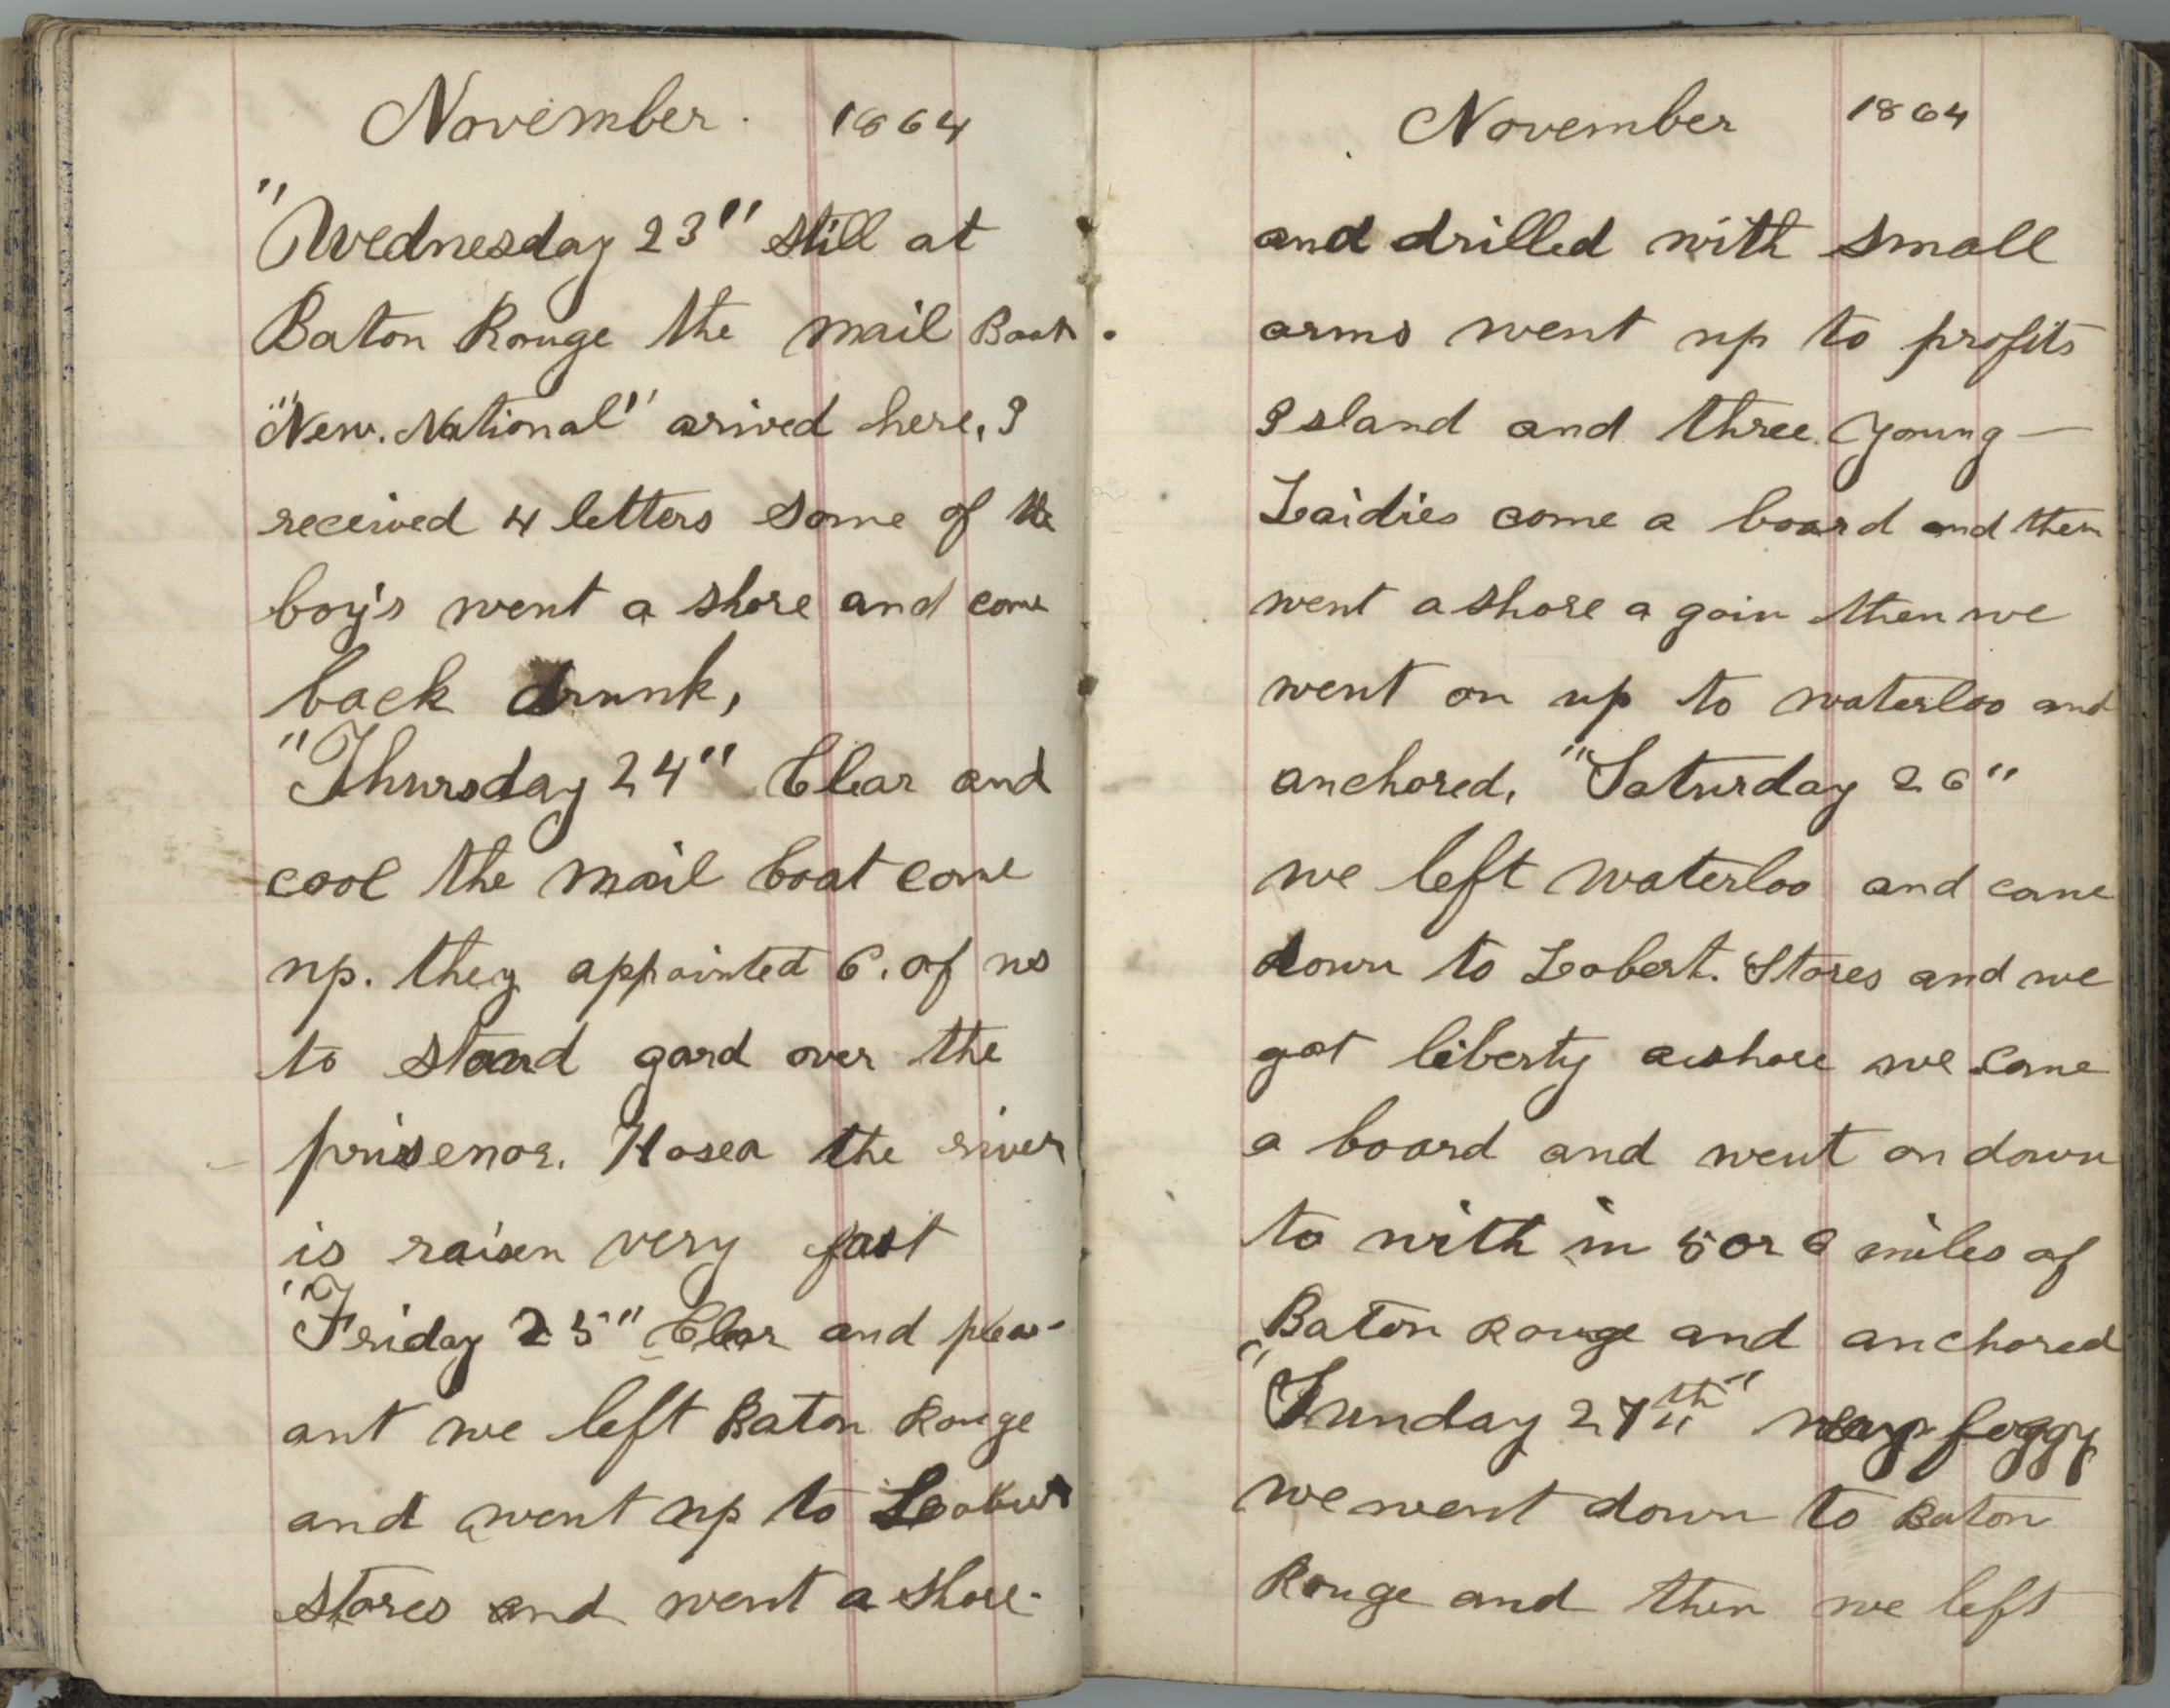 November. 1864
"Wednesday 23" still at
Baton Rouge the mail Boat
"New. National" arived here, I
received 4 letters some of the
boy's went a shore and come
back drunk,
"Thursday 24" Clear and
cool the mail boat come
up. they appointed 6. of us
to stand gard over the
prisenor. Hosea the river
is raisen very fast
"Friday 25" Clear and pleas-
ant we left Baton Rouge
and went up to
stores and went a shore.
November 1864
and drilled with small
arms went up to profits
Island and three young
Laidies come a board and then
went a shore a gain then we
went on up to waterloo and
anchored, "Saturday 26"
we left waterloo and came
down to Lobert. Stores and we
got liberty ashore we came
a board and went on down
to with in 5 or 6 miles of
Baton Rouge and anchored
"Sunday 27th" very foggy
we went down to Baton
Rouge and then we left